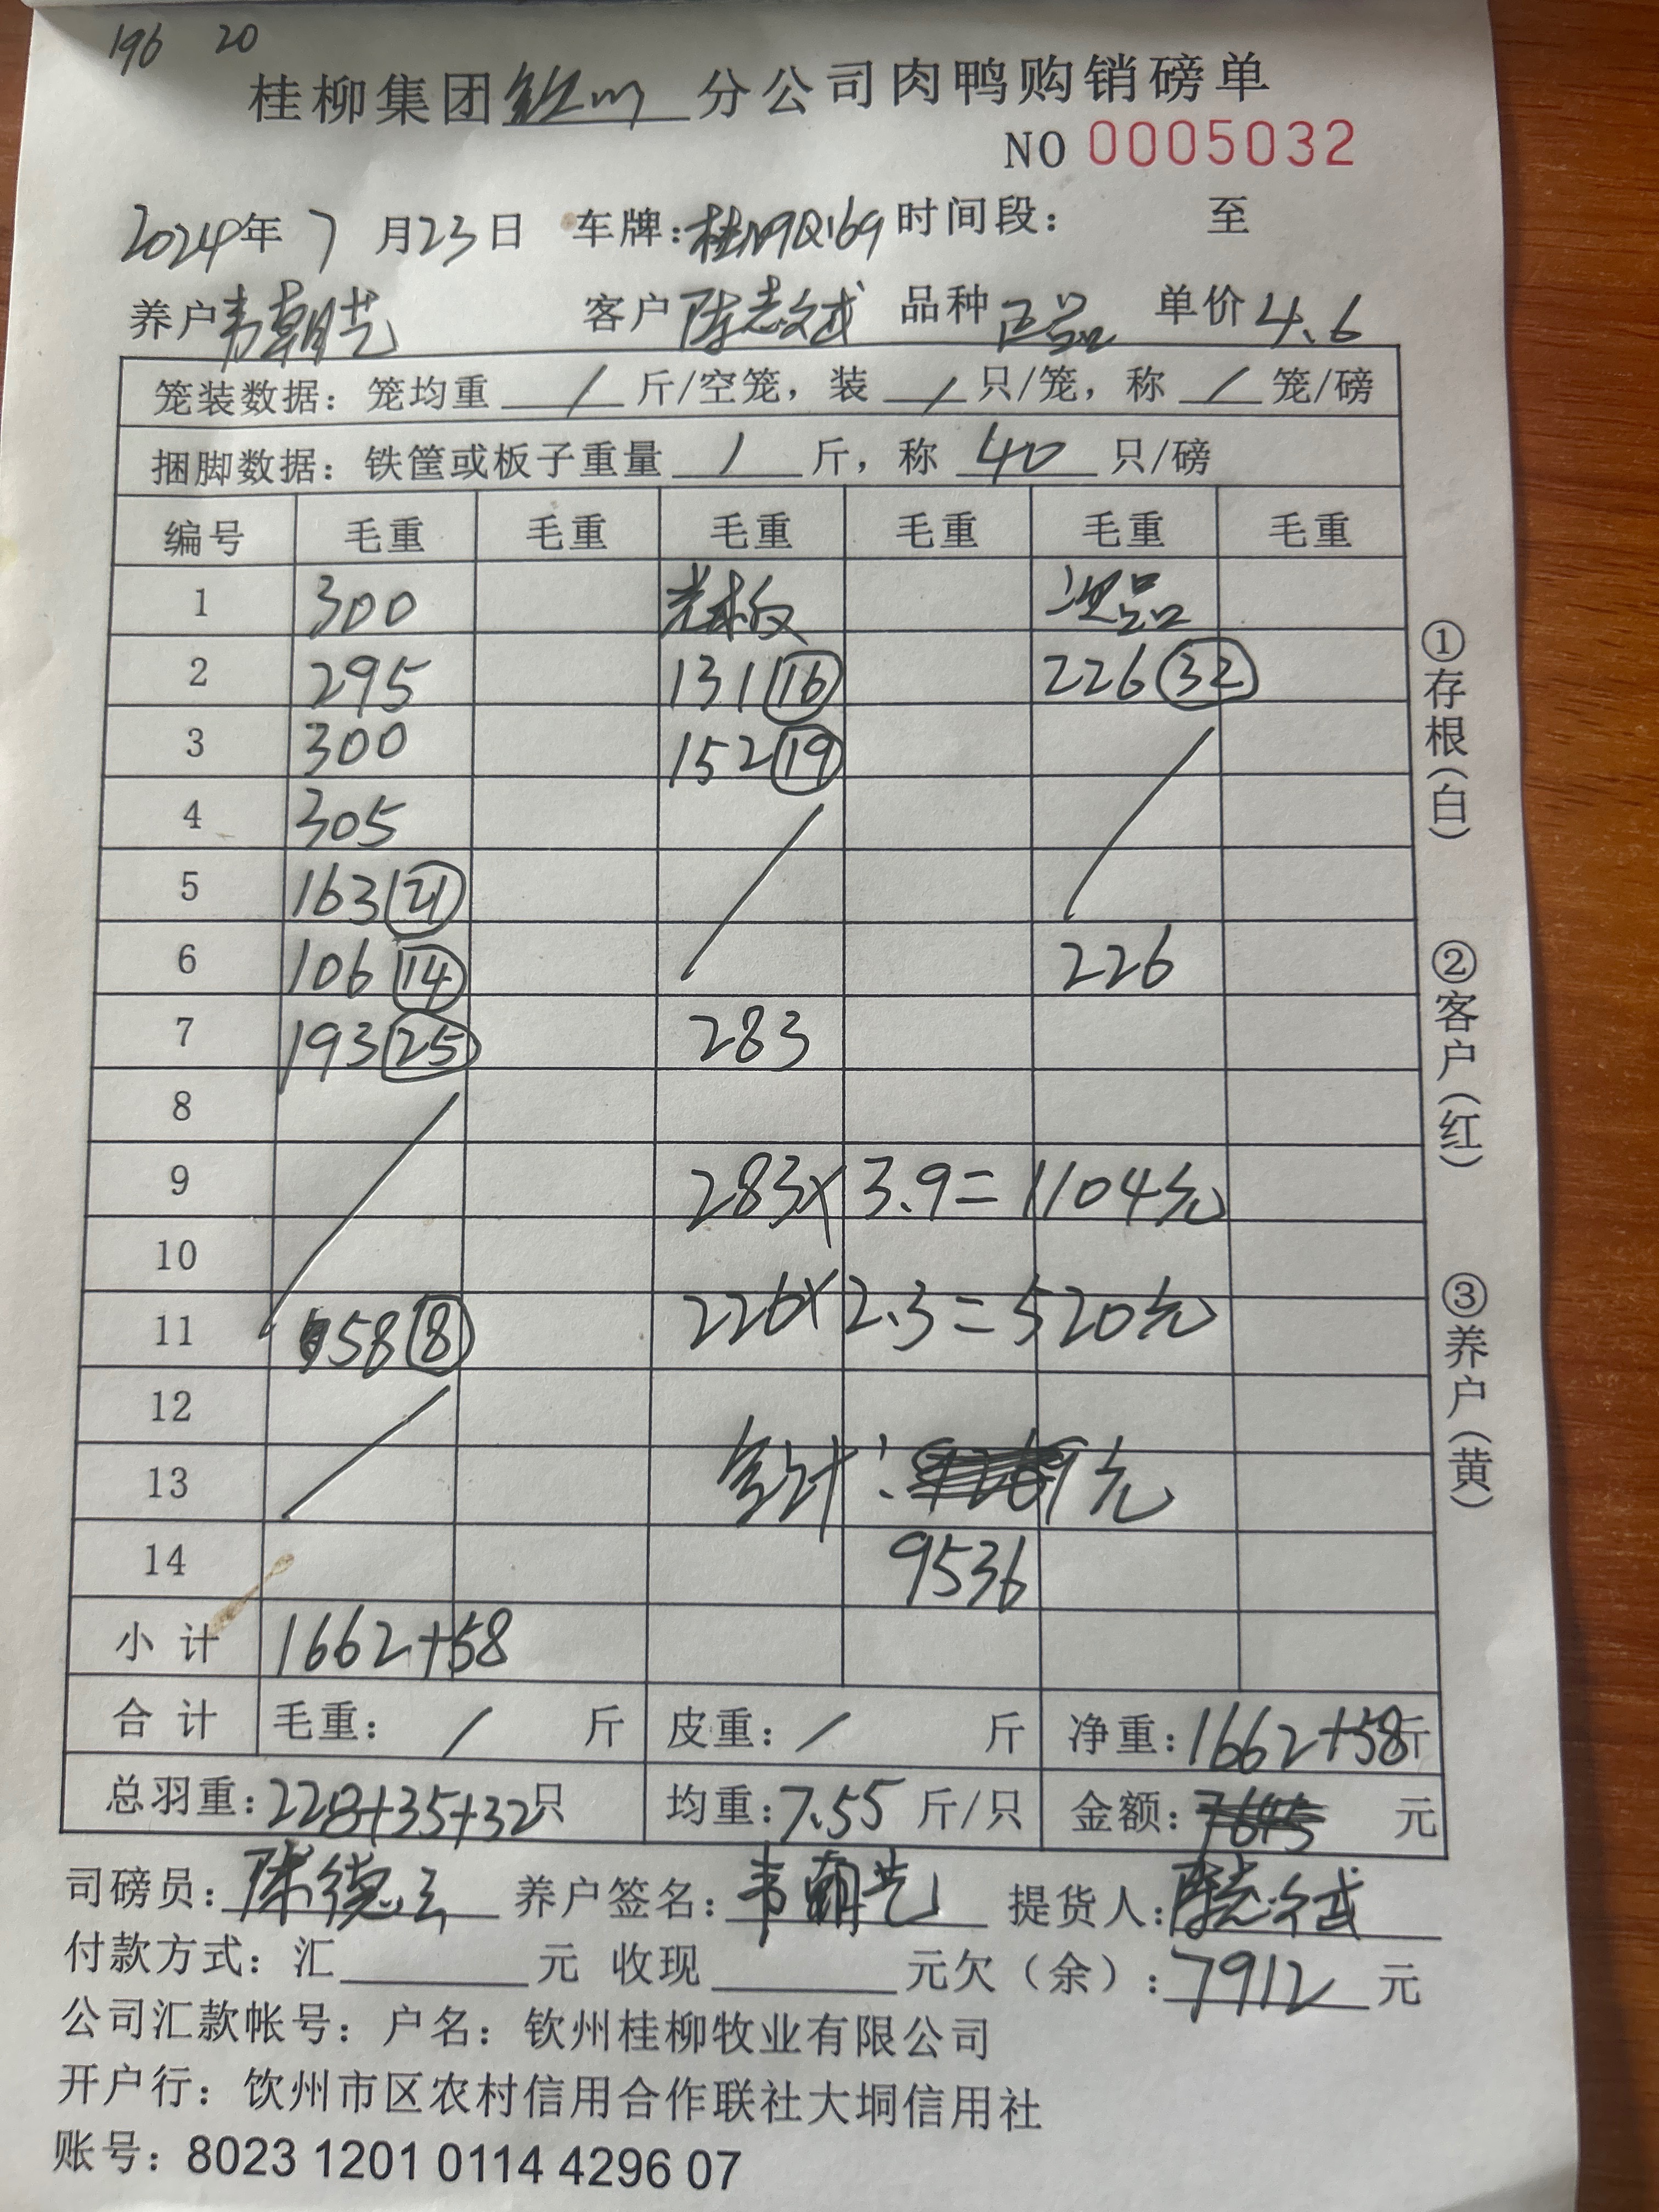 196 20
桂柳集团钦州分公司肉鸭购销磅单
NO 0005032
2024年 7 月23日 车牌: 时间段: 至
养户韦朝艺 客户陈志斌 品种正品 单价4.6
笼装数据: 笼均重 / 斤/空笼, 装 / 只/笼, 称 / 笼/磅
捆脚数据: 铁筐或板子重量 / 斤, 称 40 只/磅
编号 毛重 毛重 毛重 毛重 毛重 毛重
1 300 次品
2 295 131 16 226 32
3 300 152 19
4 305
5 163 21
6 106 14 226
7 193 25 283
8
9 283×3.9=1104元
10
11 58 8 226×2.3=520元
12
13 合计: 元
14 9536
小计 1662+58
合计 毛重: / 斤 皮重: / 斤 净重: 1662+58斤
总羽重: 228+35+32只 均重: 7.55 斤/只 金额: 7645 元
司磅员: 陈德云 养户签名: 韦朝艺 提货人: 陈志斌
付款方式: 汇 元 收现 元欠(余): 7912 元
公司汇款帐号: 户名: 钦州桂柳牧业有限公司
开户行: 钦州市区农村信用合作联社大垌信用社
账号: 8023 1201 0114 4296 07
①存根(白)
②客户(红)
③养户(黄)